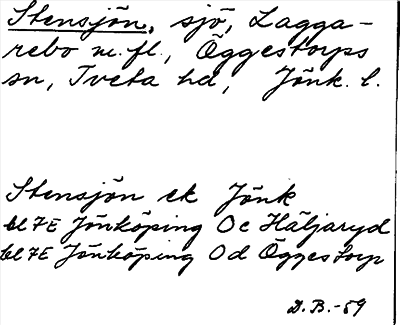 Stensjön, sjö, Lagga-
rebo m.fl., Öggestorps
sn, Tveta hd, Jönk. l.
Stensjön ek Jönk
bl 7E Jönköping 0c Häljaryd
bl 7E Jönköping 0d Öggestorp
D.B.-59